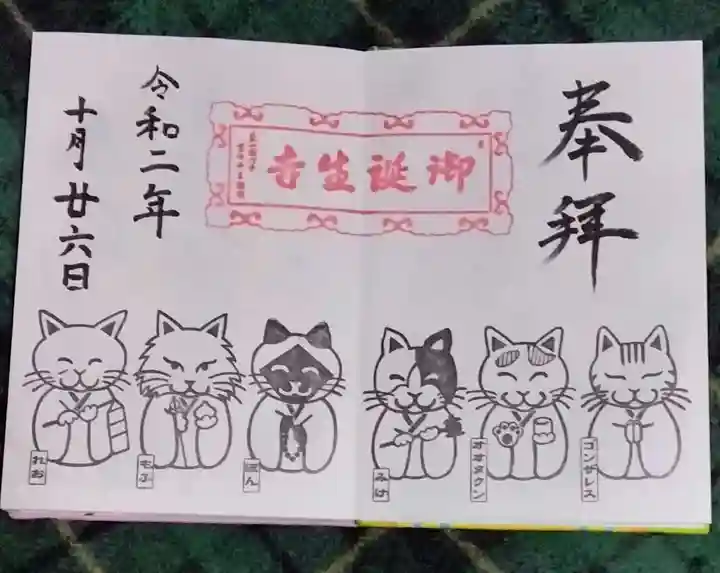 奉拝
御誕生寺
令和二年
十月廿六日
ゴンザレス
オオタクン
みけ
ぽん
もふ
れお